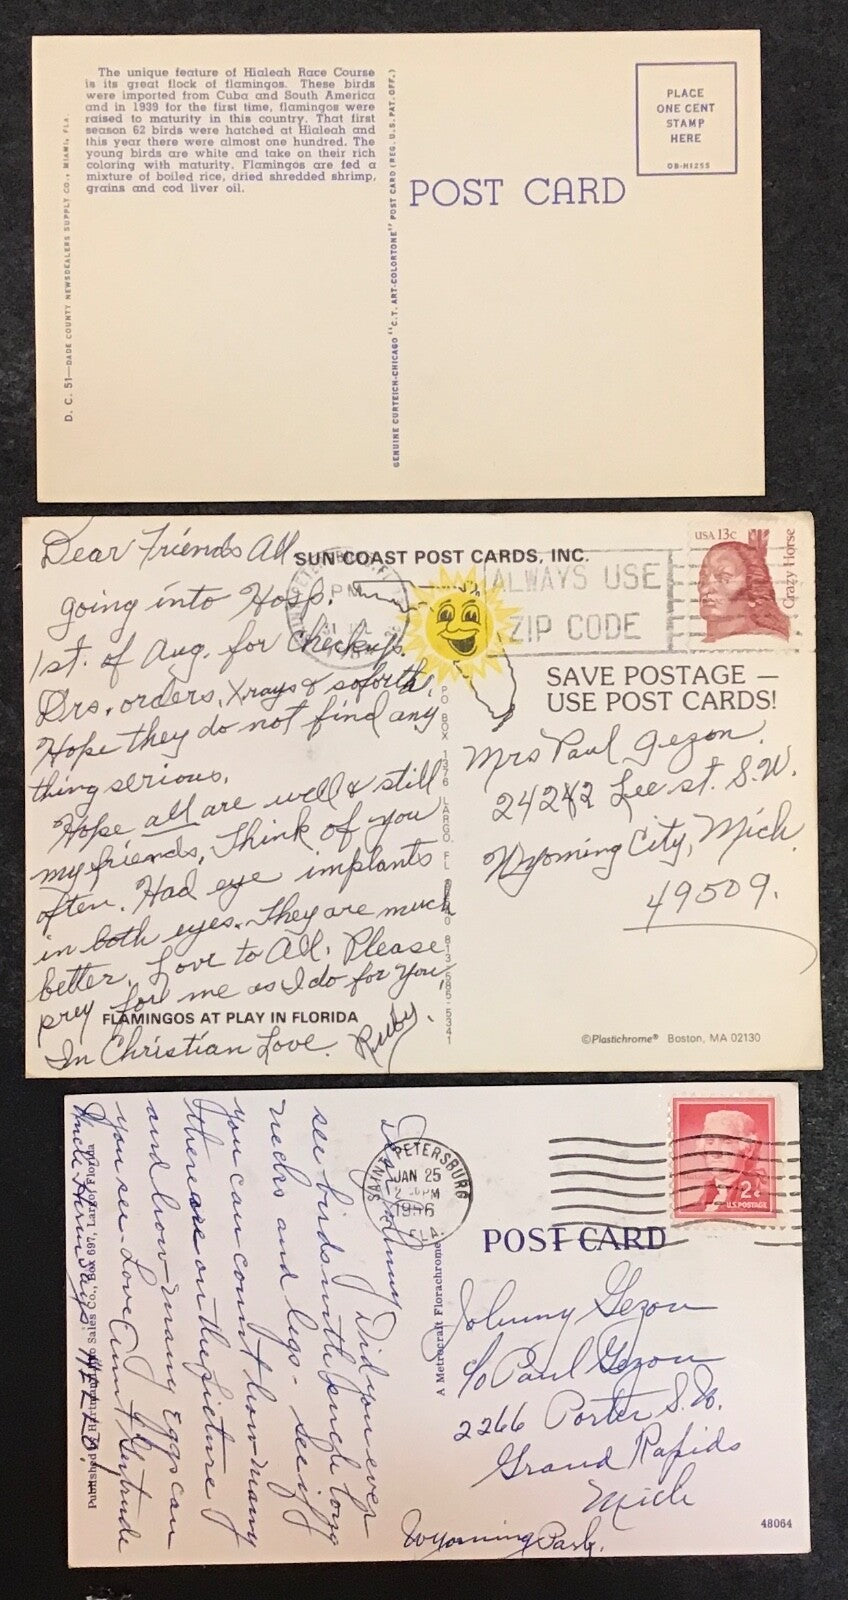 The unique feature of Hialeah Race Course
is its great flock of flamingos. These birds
were imported from Cuba and South America
and in 1939 for the first time, flamingos were
raised to maturity in this country. That first
season 62 birds were hatched at Hialeah and
this year there were almost one hundred. The
young birds are white and take on their rich
coloring with maturity. Flamingos are fed a
mixture of boiled rice, dried shredded shrimp,
grains and cod liver oil.
D. C. 51—DADE COUNTY NEWSDEALERS SUPPLY CO., MIAMI, FLA.
GENUINE CURTEICH-CHICAGO "C.T. ART-COLORTONE" POST CARD (REG. U.S. PAT. OFF.)
POST CARD
PLACE
ONE CENT
STAMP
HERE
OB-H1255
Dear Friends All
going into Hosp.
1st. of Aug. for Checkups.
Drs. orders, Xrays & soforth.
Hope they do not find any
thing serious.
Hope all are well & still
my friends. Think of you
often. Had eye implants
in both eyes. They are much
better. Love to All. Please
prey for me as I do for you,
In Christian Love. Ruby.
SUN COAST POST CARDS, INC.
PM
ALWAYS USE
ZIP CODE
USA 13c
Crazy Horse
SAVE POSTAGE —
USE POST CARDS!
PO BOX 1376 LARGO, FL
Mrs Paul Gezon.
2424 Lee st. S.W.
Wyoming City, Mich.
49509.
FLAMINGOS AT PLAY IN FLORIDA
©Plastichrome® Boston, MA 02130
Dear Johnny Did you ever
see birds with such long
necks and legs - see if
you can count how many
there are on the picture
and how many Eggs can
you see - Love Aunt Gertrude
Uncle Herm says HELLO.
Sales Co., Box 697, Largo, Florida
A Metrocraft Florachrome
SAINT PETERSBURG
JAN 25
PM
1956
2¢
U.S. POSTAGE
POST CARD
Johnny Gezon
c/o Paul Gezon
2266 Porter S.W.
Grand Rapids
Mich
Wyoming Park.
48064